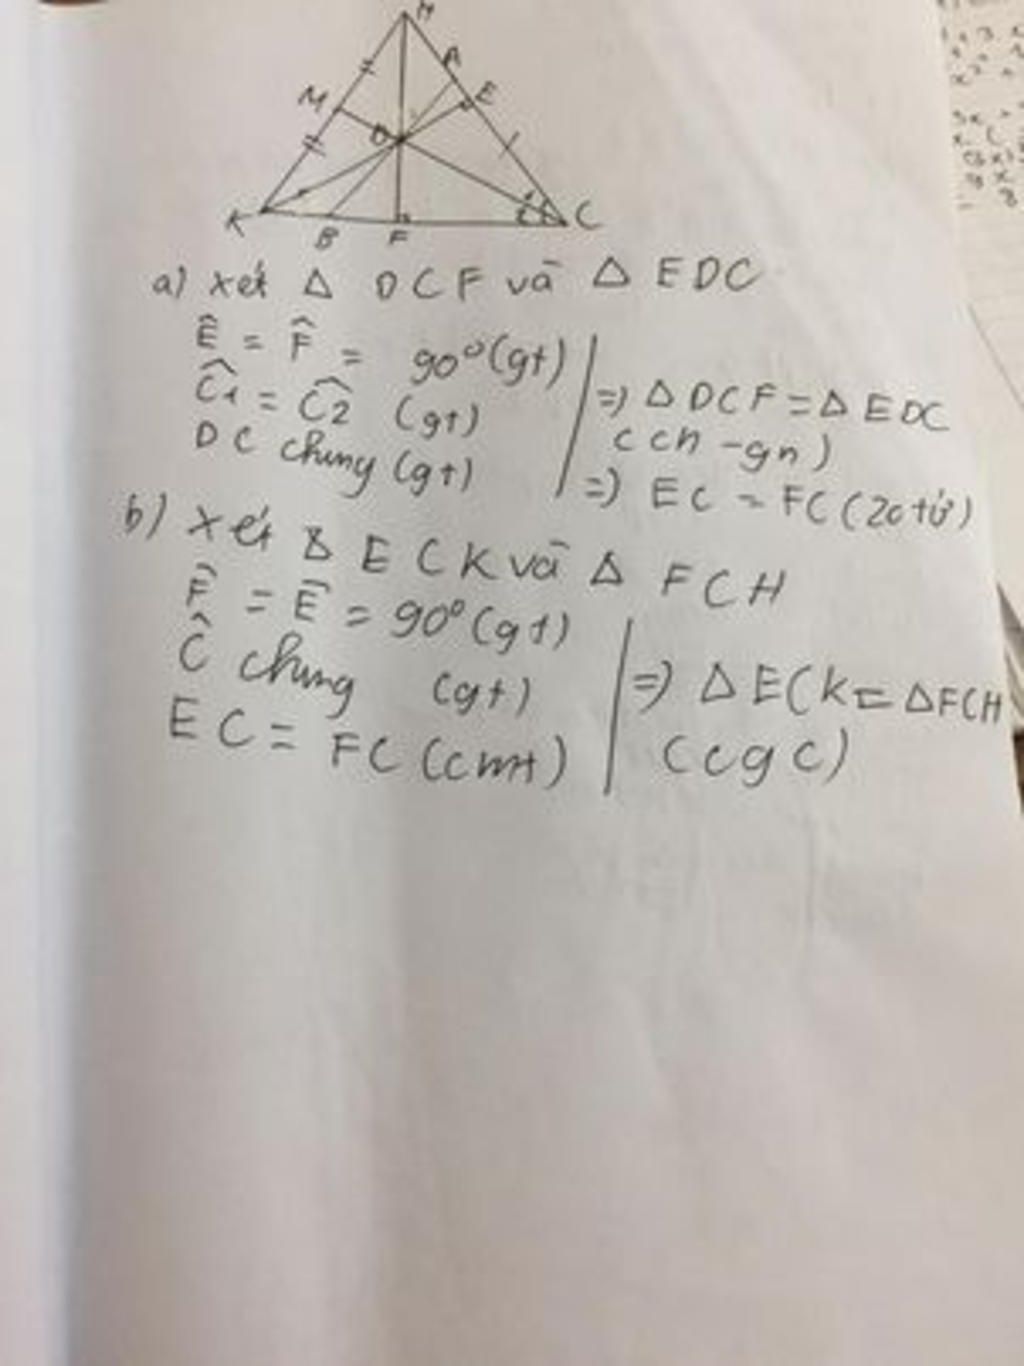 H
A
M E
D
K B F C
a) xét Δ DCF và Δ EDC
Ê = F̂ = 90° (gt)
Ĉ1 = Ĉ2 (gt)
DC chung (gt)
=> Δ DCF = Δ EDC
(ch - gn)
=> EC = FC (2c tứ)
b) xét Δ ECK và Δ FCH
F̂ = Ê = 90° (gt)
Ĉ chung (gt)
EC = FC (cmt)
=> Δ ECK = Δ FCH
(cgc)